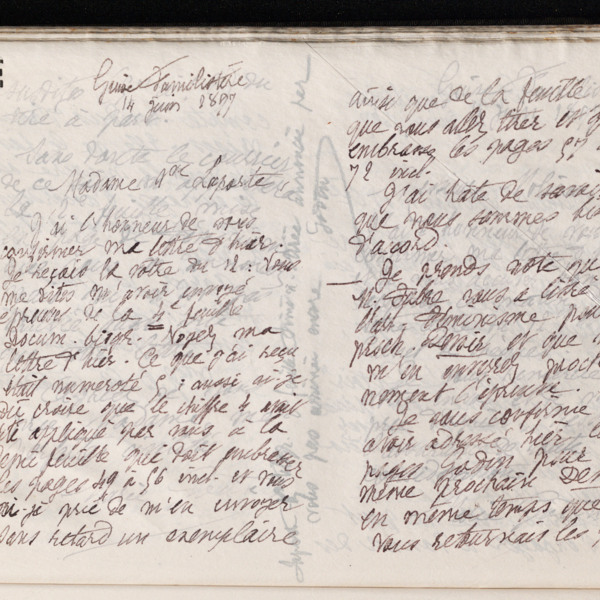 Guise Familistère
14 juin 1897
Madame Vve Laporte
J'ai l'honneur de vous
confirmer ma lettre d'hier.
Je reçois la vôtre du 12. Vous
me dites m'avoir envoyé
épreuve de la 4e feuille
Docum. biogr. = Voyez ma
lettre d'hier. Ce que j'ai reçu
était numéroté 5; aussi ai-je
dû croire que le chiffre 4 avait
été appliqué par vous à la
demi feuille qui doit embrasser
les pages 49 à 56 incl. et vous
ai-je prié de m'en envoyer
sans retard un exemplaire
ainsi que de la feuille
que vous allez tirer et q
embrasse les pages 57
72 incl.
J'ai hâte de savoir
que nous sommes bi
d'accord.
Je prends note qu
M. Fabre vous a
Féminisme pou
proch. Devoir et que
m'en enverrez proch
nement l'épreuve.
Je vous confirme
avoir adressé hier
pages Godin pour
même prochain De
en même temps que
vous retournais les